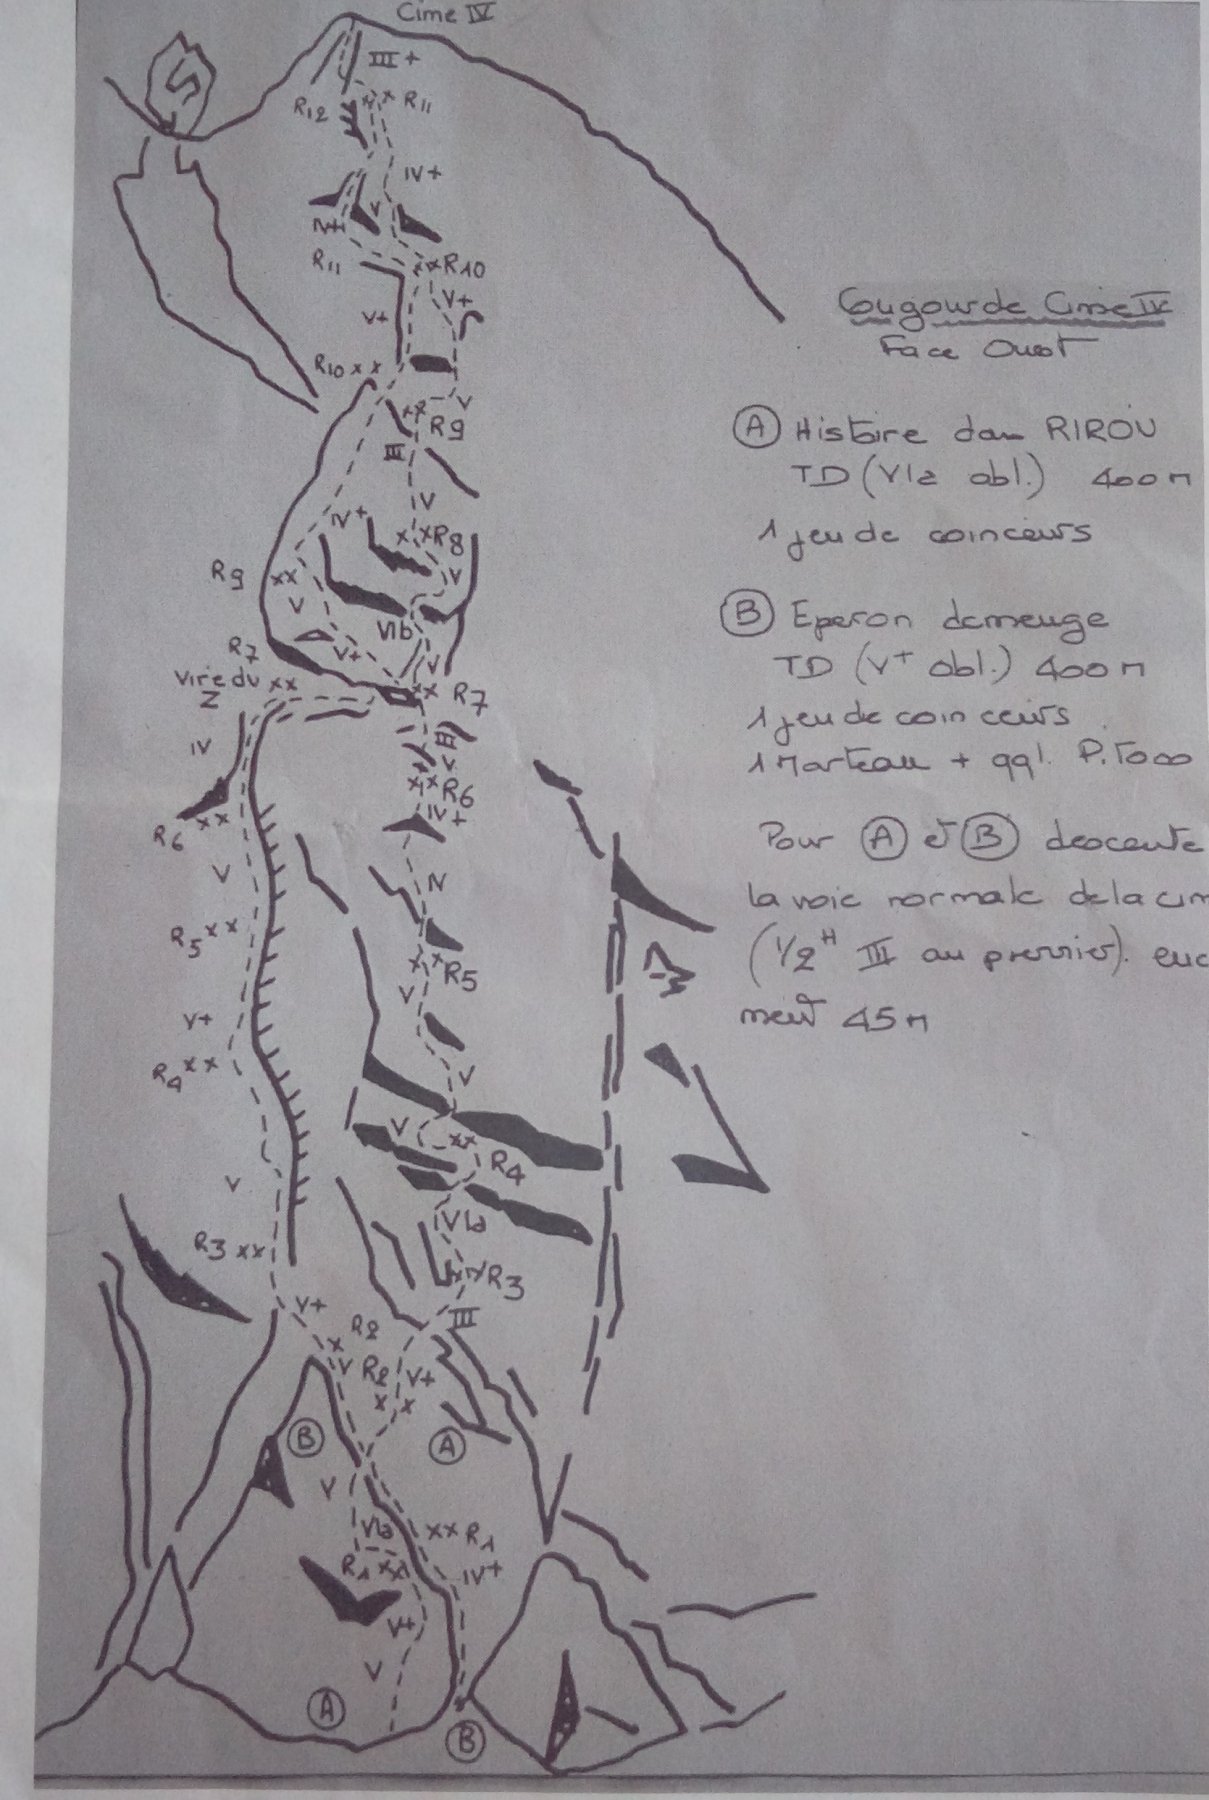 Cime IV
III+
R12
R11
IV+
V
IV+
R11
R10
V+
V+
R10
V
R9
III
V
IV+
R8
V
R9
V
VIb
V+
V
R7
Vire du
Z
R7
III
IV
V
R6
IV+
R6
V
IV
R5
R5
V
V+
R4
V
V
R4
V
VIa
R3
R3
III
V+
R2
V
R2
V+
B
A
V
VIa
R1
R1
IV+
V+
V
A
B
Cougourde Cime IV
Face Ouest
A Histoire dan RIROU
TD (VIa obl.) 400m
1 jeu de coinceurs
B Eperon demenge
TD (V+ obl.) 400m
1 jeu de coinceurs
1 Marteau + qql. Pitons
Pour A et B descente
la voie normale de la cim
(1/2H III au premier).
45m